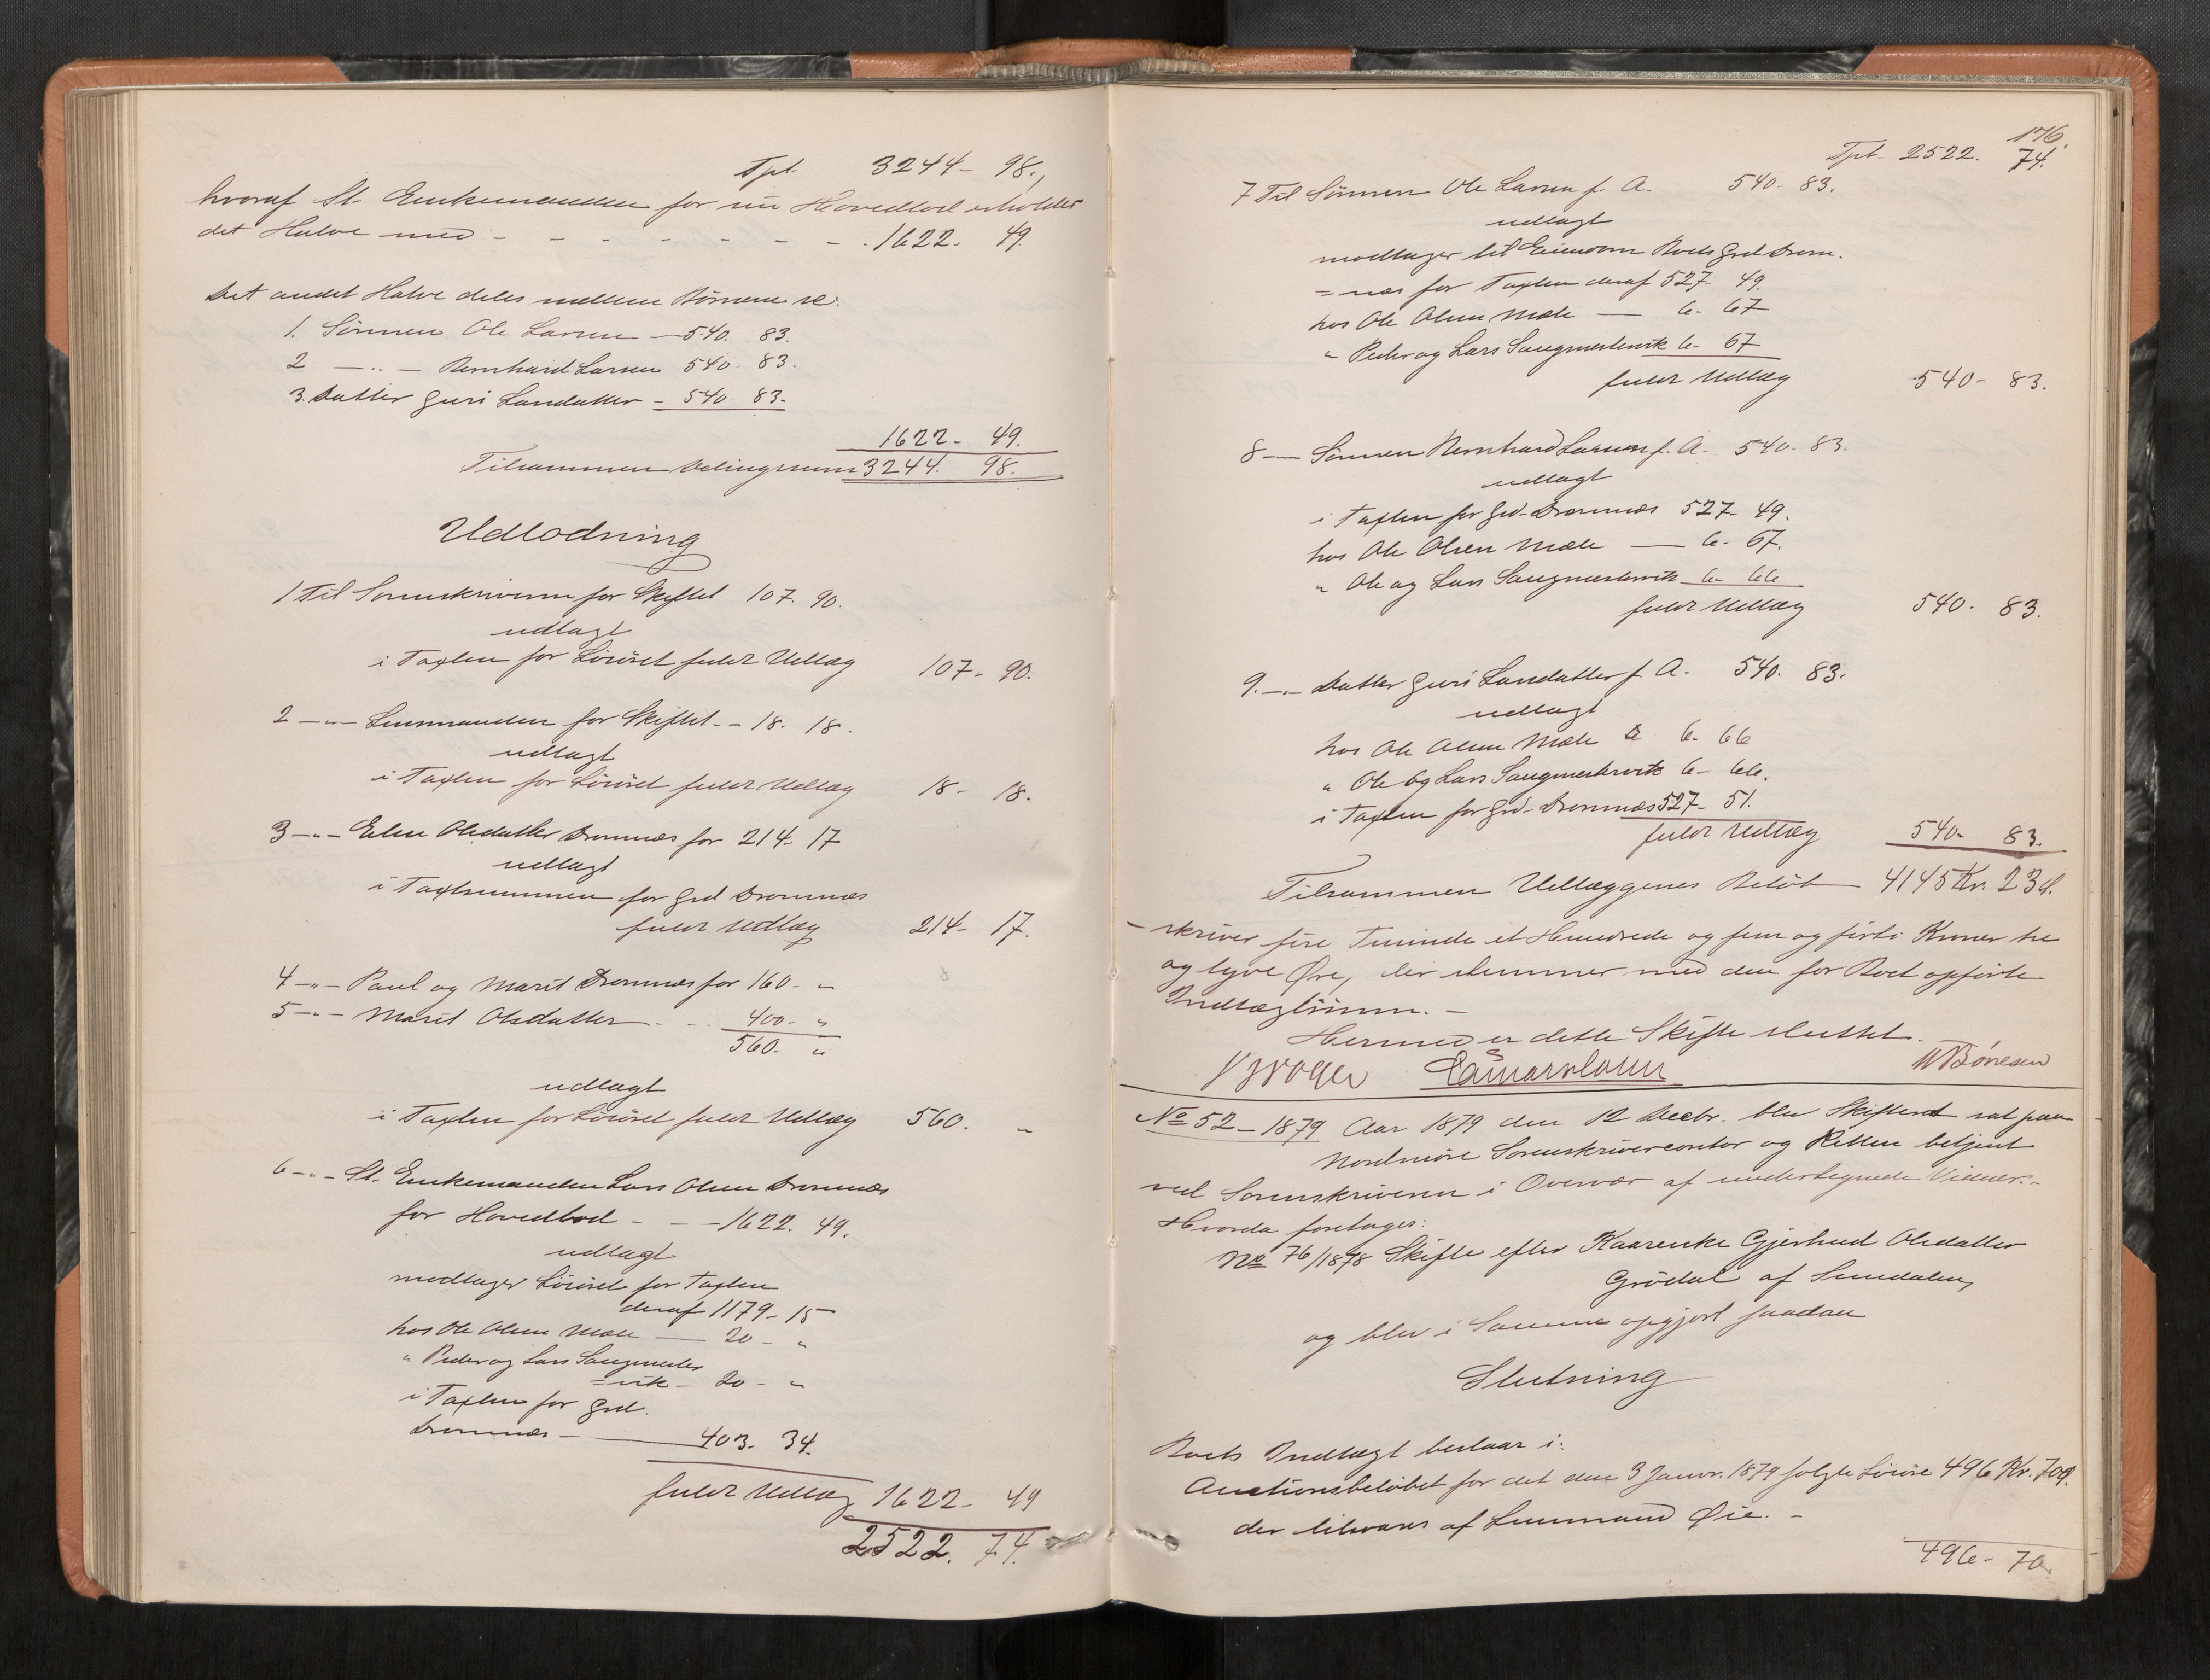 Tpt. 3244- 98.,
hvoraf St. Enkemanden for sin Hovedlod erholder
det Halve med - - - - - - - 1622- 49.
Det andet Halve deles mellem Børnene ve:
1. Sønnen Ole Larsen - 540. 83.
2 - " - Bernhard Larsen 540 83.
3. Datter Guri Larsdatter - 540 83-
1622- 49.
Tilsammen Delingssum 3244. 98.
Udlodning
1 Til Sorenskriveren for Skiftet 107. 90.
udlagt
i Taxten for Løsøret fuldt Udlæg 107- 90.
2 - " - Lensmanden for Skiftet - - 18. 18.
udlagt
i Taxten for Løsøret fuldt Udlæg 18- 18.
3 - " - Elen Olsdatter Dromnæs for 214- 17
udlagt
i Taxtsummen for Grd Dromnæs
fuldt Udlæg 214- 17.
4 - " - Paul og Marit Dromnæs for 160- "
5 - " - Marit Olsdatter - - 400- "
560- "
udlagt
i Taxten for Løsøret fuldt Udlæg 560. "
6 - " - St. Enkemanden Lars Olsen Dromnæs
for Hovedlod - - - 1622. 49.
udlagt
modtager Løsøret for Taxten
deraf 1179- 15
hos Ole Olsen Mæle - 20- "
" Peder og Lars Saugmester
=vik - 20- "
i Taxten for Grd.
Dromnæs - 403. 34.
fuldt Udlæg 1622- 49
2522. 74.
176.
Tpt. 2522. 74.
7 Til Sønnen Ole Larsen f. A. 540- 83.
udlagt
modtager til Eiendom Boets Grd Drom.
=næs for Taxten deraf 527- 49.
hos Ole Olsen Mæle - 6- 67
" Peder og Lars Saugmestervik 6- 67
fuldt Udlæg 540- 83.
8 - - Sønnen Bernhard Larsen f. A. 540- 83.
udlagt
i Taxten for Grd. Dromnæs 527- 49.
hos Ole Olsen Mæle - 6- 67.
" Ole og Lars Saugmestervik 6- 66
fuldt Udlæg 540. 83.
9. - " - Datter Guri Larsdatter f. A. 540. 83.
udlagt
hos Ole Olsen Mæle 6- 66
" Ole og Lars Saugmestervik 6- 66.
i Taxten for Grd- Dromnæs 527- 51.
fuldt Udlæg 540- 83.
Tilsammen Udlæggenes Beløb - 4145 Kr. 23 Ø.
- skriver fire Tusinde et Hundrede og fem og førti Kroner tre
og tyve Øre, der stemmer med den for Boet opførte
Indtægtssum. -
Hermed er dette Skifte sluttet.
No 52 - 1879 Aar 1879 den 12 Decbr. blev Skifteret sat paa
Nordmøre Sorenskrivercontor og Retten betjent
ved Sorenskriveren i Overvær af undertegnede Vidner. -
Hvorda foretages:
No 76/1878 Skifte efter Kaarenke Gjerhud Olsdatter
Grødal af Sundalen,
og blev i Samme opgjort saadan
Slutning
Boets Indtægt bestaar i:
Auctionsbeløbet for det den 3 Januar. 1879 solgte Løsøre 496 Kr. 70 Ø.
der tilsvares af Lensmand Øie. -
496- 70.